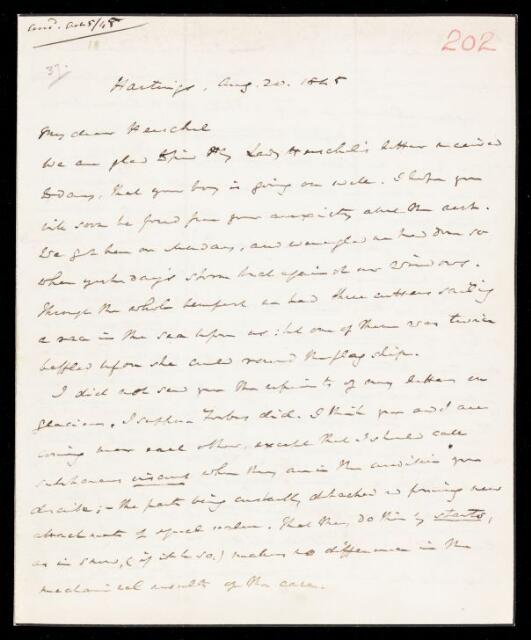 202
Hastings, Aug. 20. 1845
My dear Herschel
We are glad by Lady Herschel's letter received
today, that your boy is going on well. I hope you
will soon be freed from your anxiety about the rest.
We got here on Monday, and were glad we had done so
when yesterday's storm beat against our windows.
Through the whole tempest we had three cutters sailing
a race in the sea before us: but one of them was twice
baffled before she could round the flag ship.
I did not send you the reprints of my letters on
glaciers, I suppose Forbes did. I think you and I are
coming near each other, except that I should call
substances viscous when they are in the condition you
describe;- the parts being constantly detached and forming new
attachments of equal That they do this by starts,
as in snow, (if it be so.) makes no difference in the
mechanical results of the case.